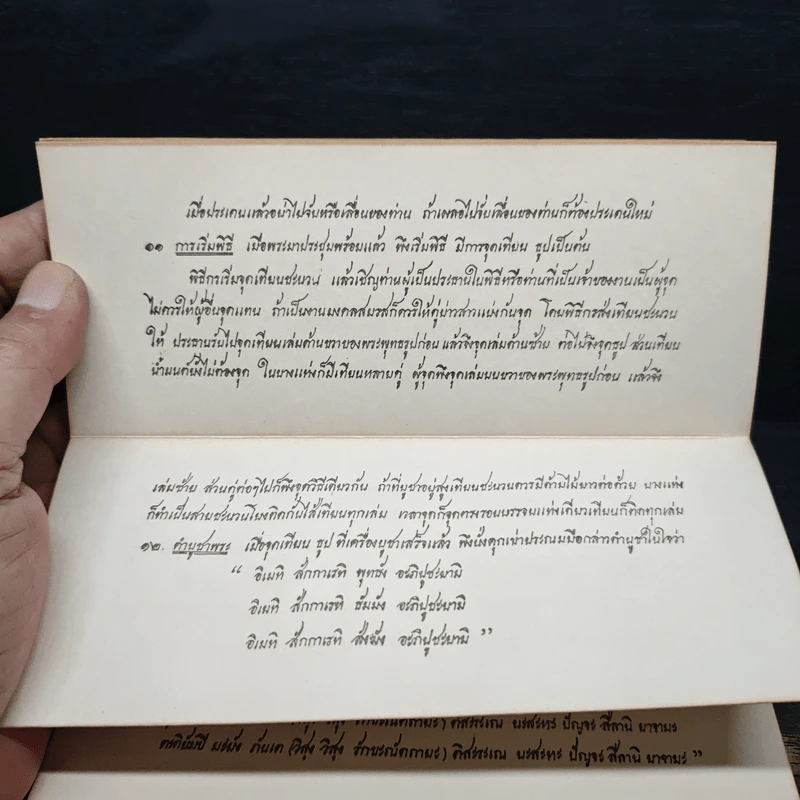 เมื่อประเคนแล้วอย่าไปจับหรือเลื่อนของท่าน ถ้าเผลอไปจับเลื่อนของท่านก็ต้องประเคนใหม่
๑๑ การเริ่มพิธี เมื่อพระมาประชุมพร้อมแล้ว พึงเริ่มพิธี มีการจุดเทียน ธูปเป็นต้น
พิธีกรเริ่มจุดเทียนชะนวน แล้วเชิญท่านผู้เป็นประธานในพิธีหรือท่านที่เป็นเจ้าของงานเป็นผู้จุด
ไม่ควรให้ผู้อื่นจุดแทน ถ้าเป็นงานมงคลสมรสก็ควรให้คู่บ่าวสาวแบ่งกันจุด โดยพิธีกรส่งเทียนชะนวน
ให้ ประธานรับไปจุดเทียนเล่มด้านขวาของพระพุทธรูปก่อน แล้วจึงจุดเล่มด้านซ้าย ต่อไปจึงจุดธูป ส่วนเทียน
น้ำมนต์ยังไม่ต้องจุด ในบางแห่งก็มีเทียนหลายคู่ ผู้จุดพึงจุดเล่มบนขวาของพระพุทธรูปก่อน แล้วจึง
เล่มซ้าย ส่วนคู่ต่อๆไปก็พึงจุดวิธีเดียวกัน ถ้าที่บูชาอยู่สูงเทียนชะนวนควรมีด้ามไม้ยาวต่อด้วย บางแห่ง
ก็ทำเป็นสายชะนวนโยงติดกับไส้เทียนทุกเล่ม เวลาจุดก็จุดตรงรอยบรรจบแห่งเดียวเทียนก็ติดทุกเล่ม
๑๒. คำบูชาพระ เมื่อจุดเทียน ธูป ที่เครื่องบูชาเสร็จแล้ว พึงนั่งคุกเข่าประณมมือกล่าวคำบูชาในใจว่า
“ อิเมหิ สักกาเรหิ พุทธัง อะภิปูชะยามิ
อิเมหิ สักกาเรหิ ธัมมัง อะภิปูชะยามิ
อิเมหิ สักกาเรหิ สังฆัง อะภิปูชะยามิ ”
รักขะณัตถายะ ) ติสะระเณ นะสะหะ ปัญจะ สีลานิ ยาจามะ
ตะติยัมปิ มะยัง ภันเต (วิสุง วิสุง รักขะณัตถายะ ) ติสะระเณ นะสะหะ ปัญจะ สีลานิ ยาจามะ ”